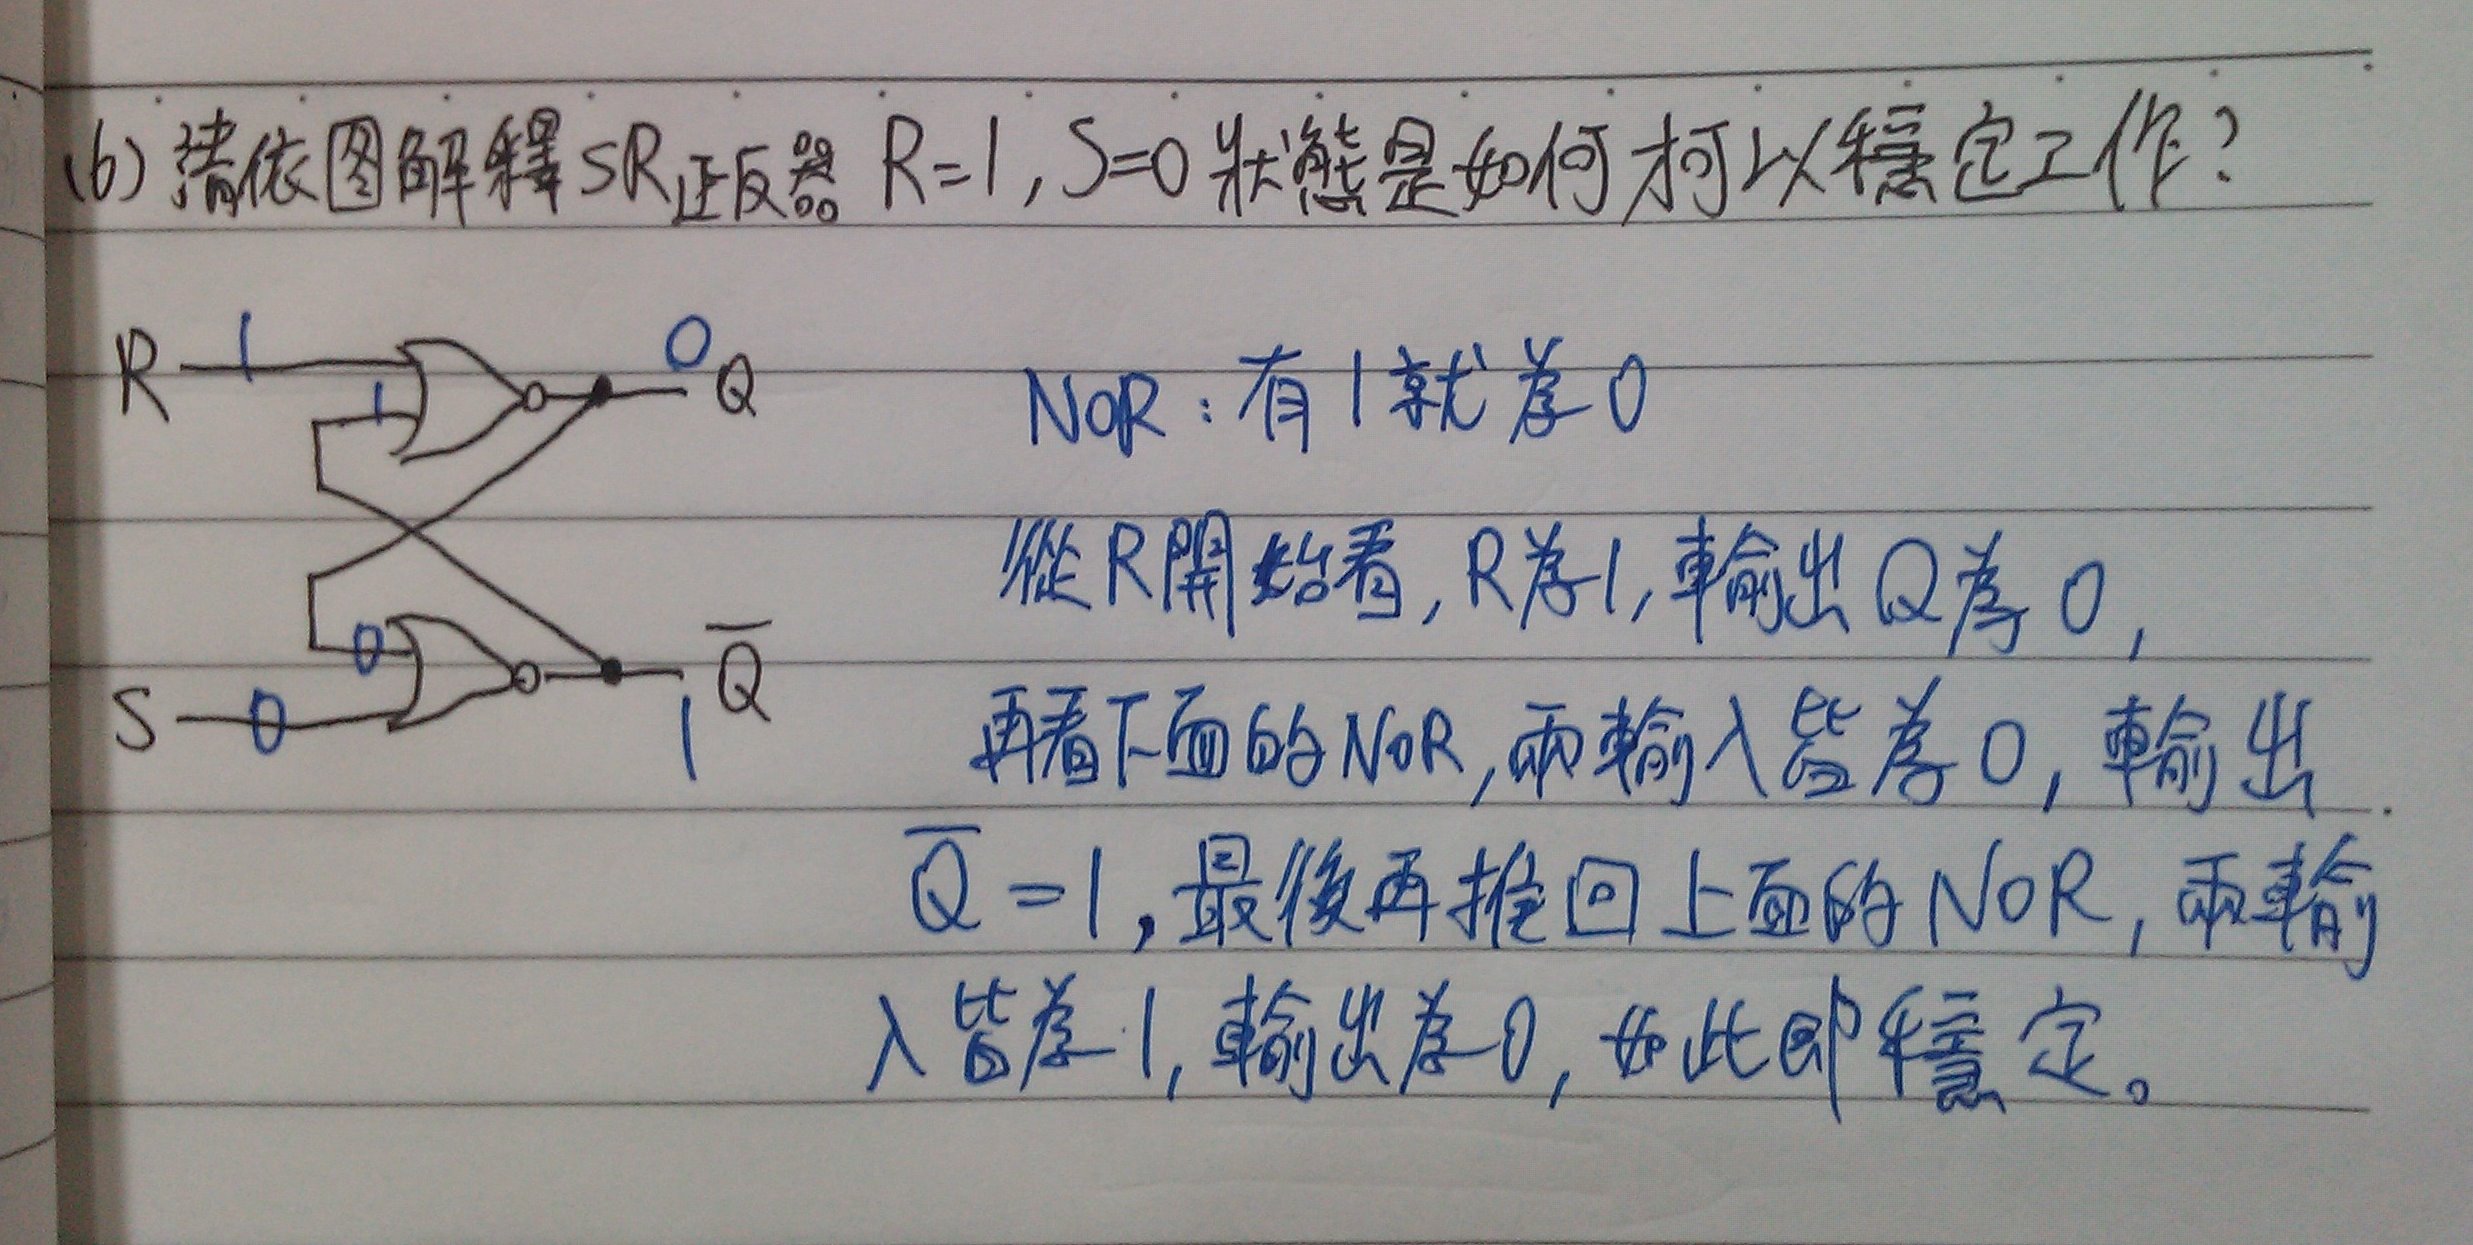 (6) 請依图解釋SR正反器 R=1, S=0 狀態是如何才可以穩定工作?
R 1 1 0 Q
NOR: 有1就為0
從R開始看, R為1, 輸出Q為0,
0 Q̅
S 0 1
再看下面的NOR, 兩輸入皆為0, 輸出
Q̅ = 1, 最後再推回上面的NOR, 兩輸
入皆為1, 輸出為0, 如此即穩定。